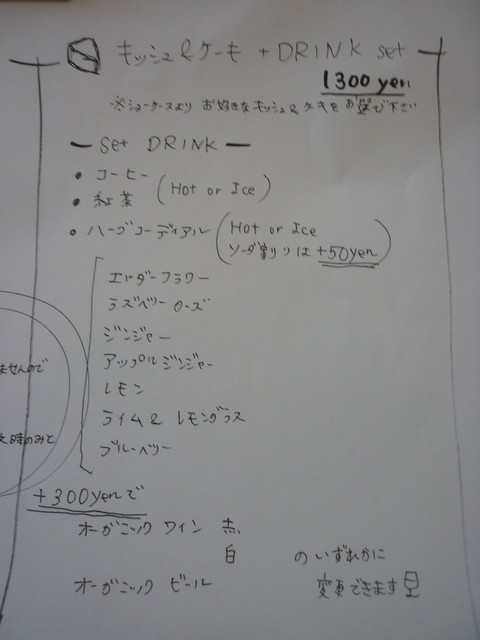 キッシュ&ケーキ + DRINK set
1300 yen
※ショーケースより お好きなキッシュ&ケーキをお選び下さい
ー set DRINK ー
• コーヒー
• 紅茶 (Hot or Ice)
• ハーブコーディアル (Hot or Ice
ソーダ割りは +50yen)
エルダーフラワー
ラズベリー ローズ
ジンジャー
アップルジンジャー
レモン
ライム & レモングラス
ブルーベリー
ませんので
時のみと
+300yenで
オーガニック ワイン 赤
白 のいずれかに
オーガニック ビール 変更できます